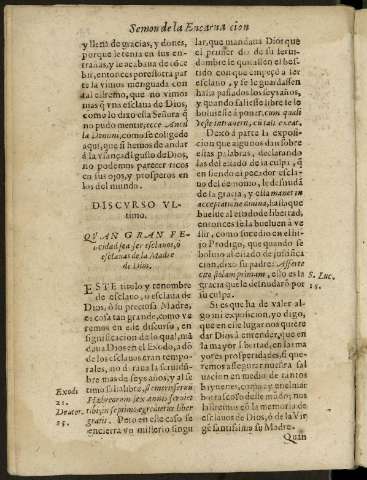 Sermon de la Encarnacion
y llena de gracias, y dones,
porque le tenia en sus en-
trañas, y le acabaua de cõce
bir, entonces por essotra par
te la vimos menguada con
tal estremo, que no vimos
mas q̃ vna esclaua de Dios,
como lo dixo ella Señora q̃
no pudo mentir, ecce Ancil
la Domini, como se colige de
aqui, que si hemos de andar
à la vsança del gusto de Dios,
no podemos parecer ricos
en sus ojos, y prosperos en
los del mundo.
DISCVRSO VL-
timo.
QVAN GRAN FE-
licidad sea ser esclauos, ò
esclauas de la Madre
de Dios.
ESTE titulo y renombre
de esclauo, o esclaua de
Dios, ò su preciosa Madre,
es cosa tan grande, como ve
remos en este discurso, en
significacion de lo qual, mã
daua Dios en el Exodo, a dõ
de los esclauos eran tempo-
rales, no duraua la seruidũ-
bre mas de seys años, y al se
timo salia libre, si emeris seruũ
Hebræum sex annis seruiet
tibi, in septimo egredietur liber
gratis. Pero en este caso se
encierra vn misterio singu
Exodi
21.
Deuter.
15.
lar, que mandaua Dios que
el primer dia de su seruí-
dumbre le quitassen el ves-
tido con que empeçò a ser
esclauo, y se le guardassen
hasta passados los seys años,
y quando saliesse libre se le
boluiesse à poner, cum quali
veste intrauerit, cũ tali exeat.
Dexo à parte la exposi
cion que algunos dan sobre
estas palabras, declarando
las del estado de la culpa, q̃
en siendo el pecador escla-
uo del demonio, le desnudã
de la gracia, y ella manet in
acceptatione diuina, hasta que
buelue al estado de libertad,
entonces se la bueluen à ve
stir, como sucedio en el hi-
jo Prodigo, que quando se
boluio al estado de justifica
cion, dixo su padre: Afferte
cito stolam primam, ello es la
gracia que le desnudarõ por
su culpa.
S. Luc.
15.
Si es que ha de valer al-
go mi exposicion, yo digo,
que en este lugar nos quere
dar Dios à entender, que en
la mayor libertad, en las ma
yores prosperidades, si que-
remos assegurar nuestra sal
uacion en medio de tantos
bayuenes, como ay en el mar
borrascoso deste mũdo; nos
valiremos cõ la memoria de
esclauos de Dios, ò de la Vir
gẽ santissima su Madre.
Quan